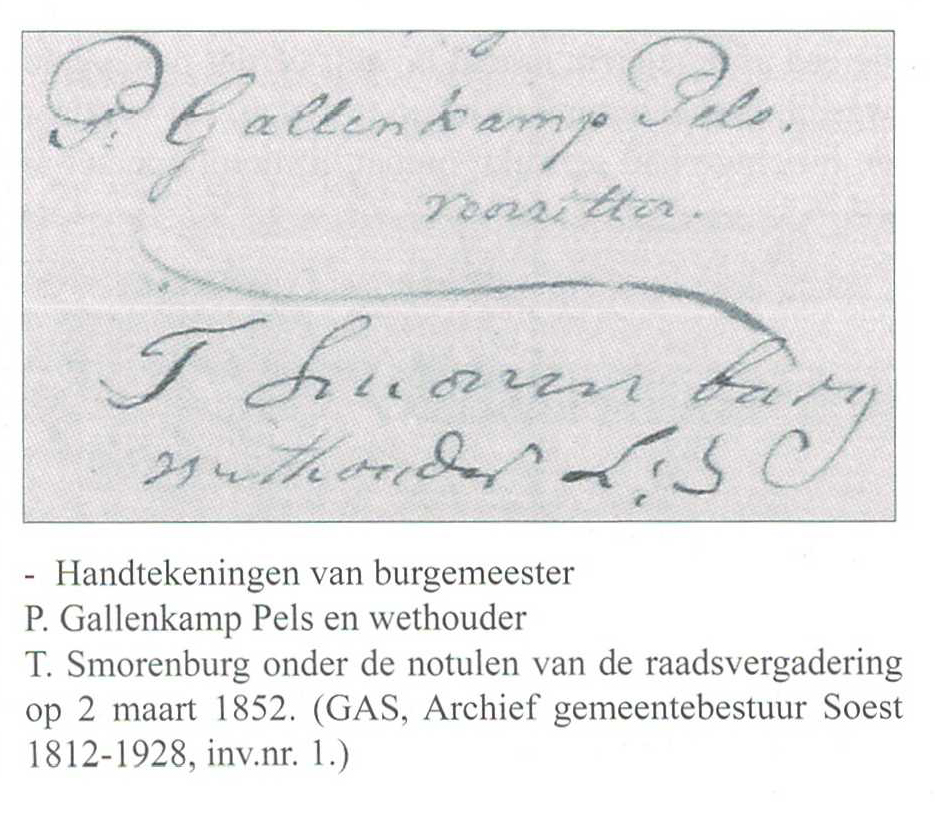 P. Gallenkamp Pels.
voorzitter.
T Smorenburg
wethouder L: S
- Handtekeningen van burgemeester
P. Gallenkamp Pels en wethouder
T. Smorenburg onder de notulen van de raadsvergadering
op 2 maart 1852. (GAS, Archief gemeentebestuur Soest
1812-1928, inv.nr. 1.)